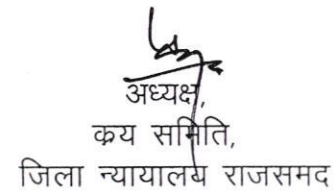 अध्यक्ष,
क्रय समिति,
जिला न्यायालय राजसमद